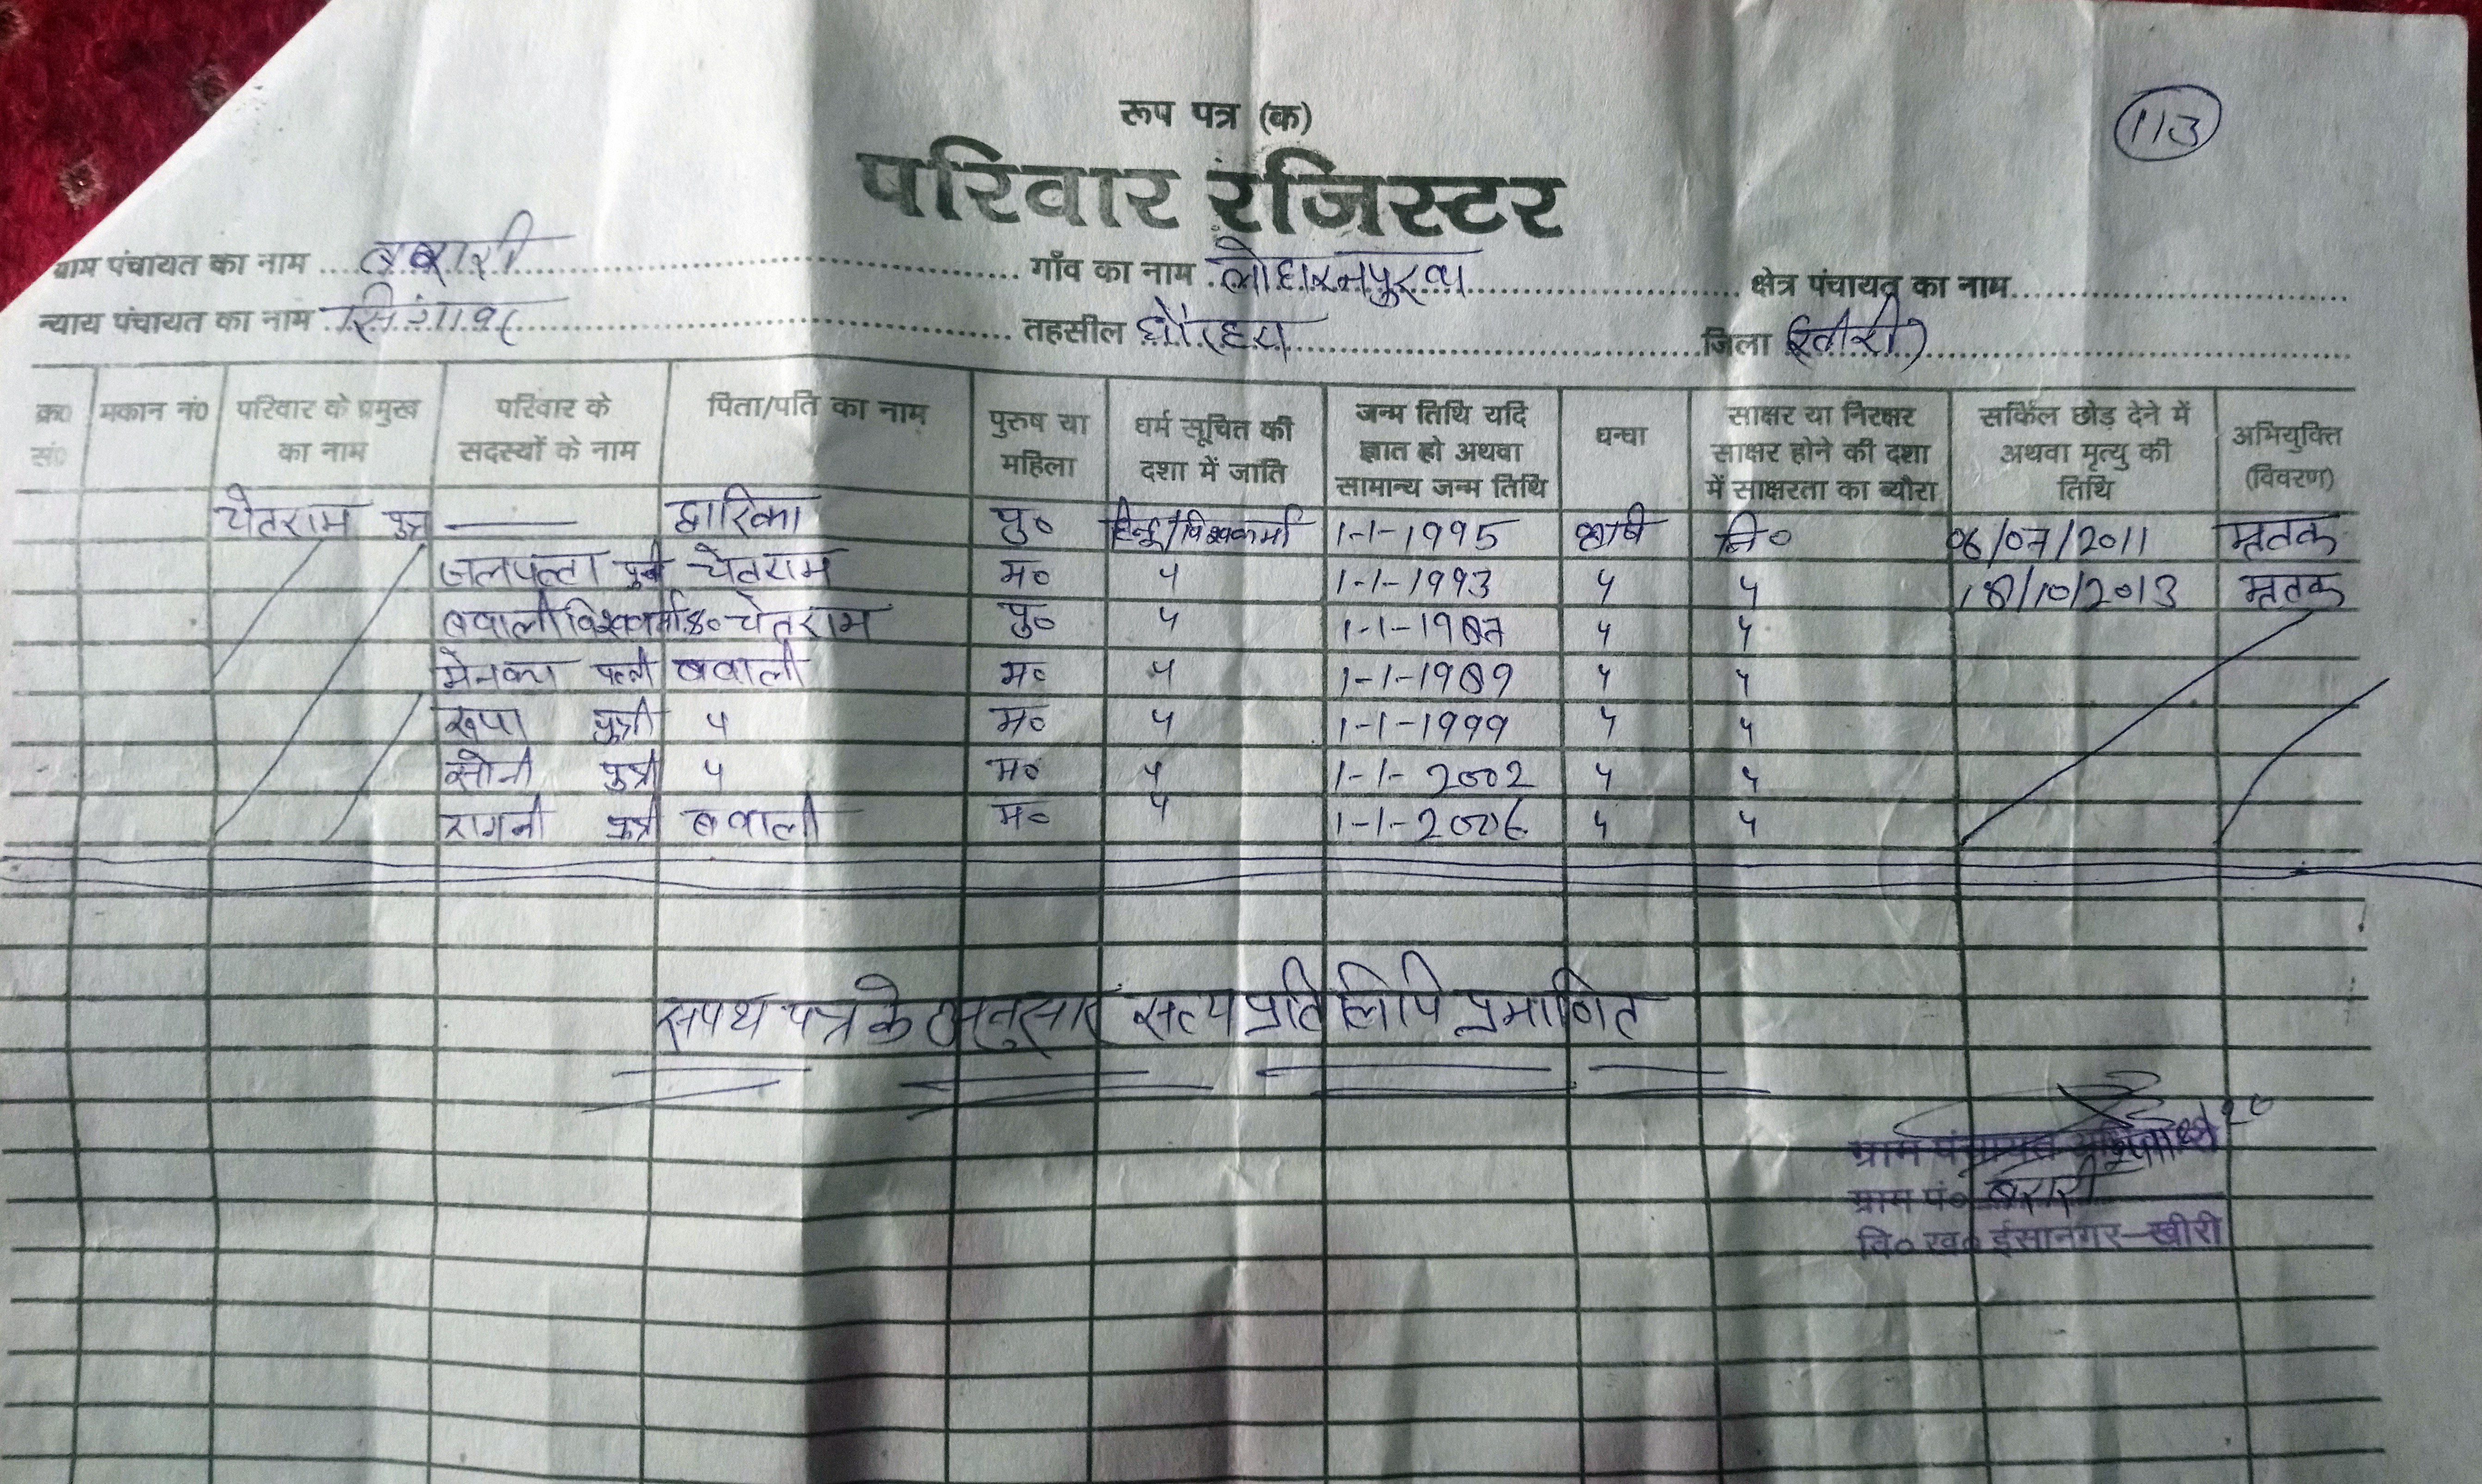 रूप पत्र (क)
113
परिवार रजिस्टर
ग्राम पंचायत का नाम ... गाँव का नाम लोहारनपुरवा क्षेत्र पंचायत का नाम
न्याय पंचायत का नाम तहसील धौरहरा जिला खीरी
क्र० सं० मकान नं० परिवार के प्रमुख का नाम परिवार के सदस्यों के नाम पिता/पति का नाम पुरुष या महिला धर्म सूचित की दशा में जाति जन्म तिथि यदि ज्ञात हो अथवा सामान्य जन्म तिथि धन्धा साक्षर या निरक्षर साक्षर होने की दशा में साक्षरता का ब्यौरा सर्किल छोड़ देने में अथवा मृत्यु की तिथि अभियुक्ति (विवरण)
चेतराम पुत्र — द्वारिका पु० हिन्दू/विश्वकर्मा 1-1-1995 कृषि नि० 06/07/2011 मृतक
चेतराम म० " 1-1-1993 " " 18/10/2013 मृतक
बवाली विश्वकर्मा पु० चेतराम पु० " 1-1-1987 " "
मेनका पत्नी बवाली म० " 1-1-1989 " "
रूपा पुत्री " म० " 1-1-1999 " "
सोनी पुत्री " म० " 1-1-2002 " "
रागनी पुत्री बवाली म० " 1-1-2006 " "
सपथ पत्र के अनुसार सत्य प्रतिलिपि प्रमाणित
ग्राम पंचायत
ग्राम पं०
वि० ख० ईसानगर-खीरी